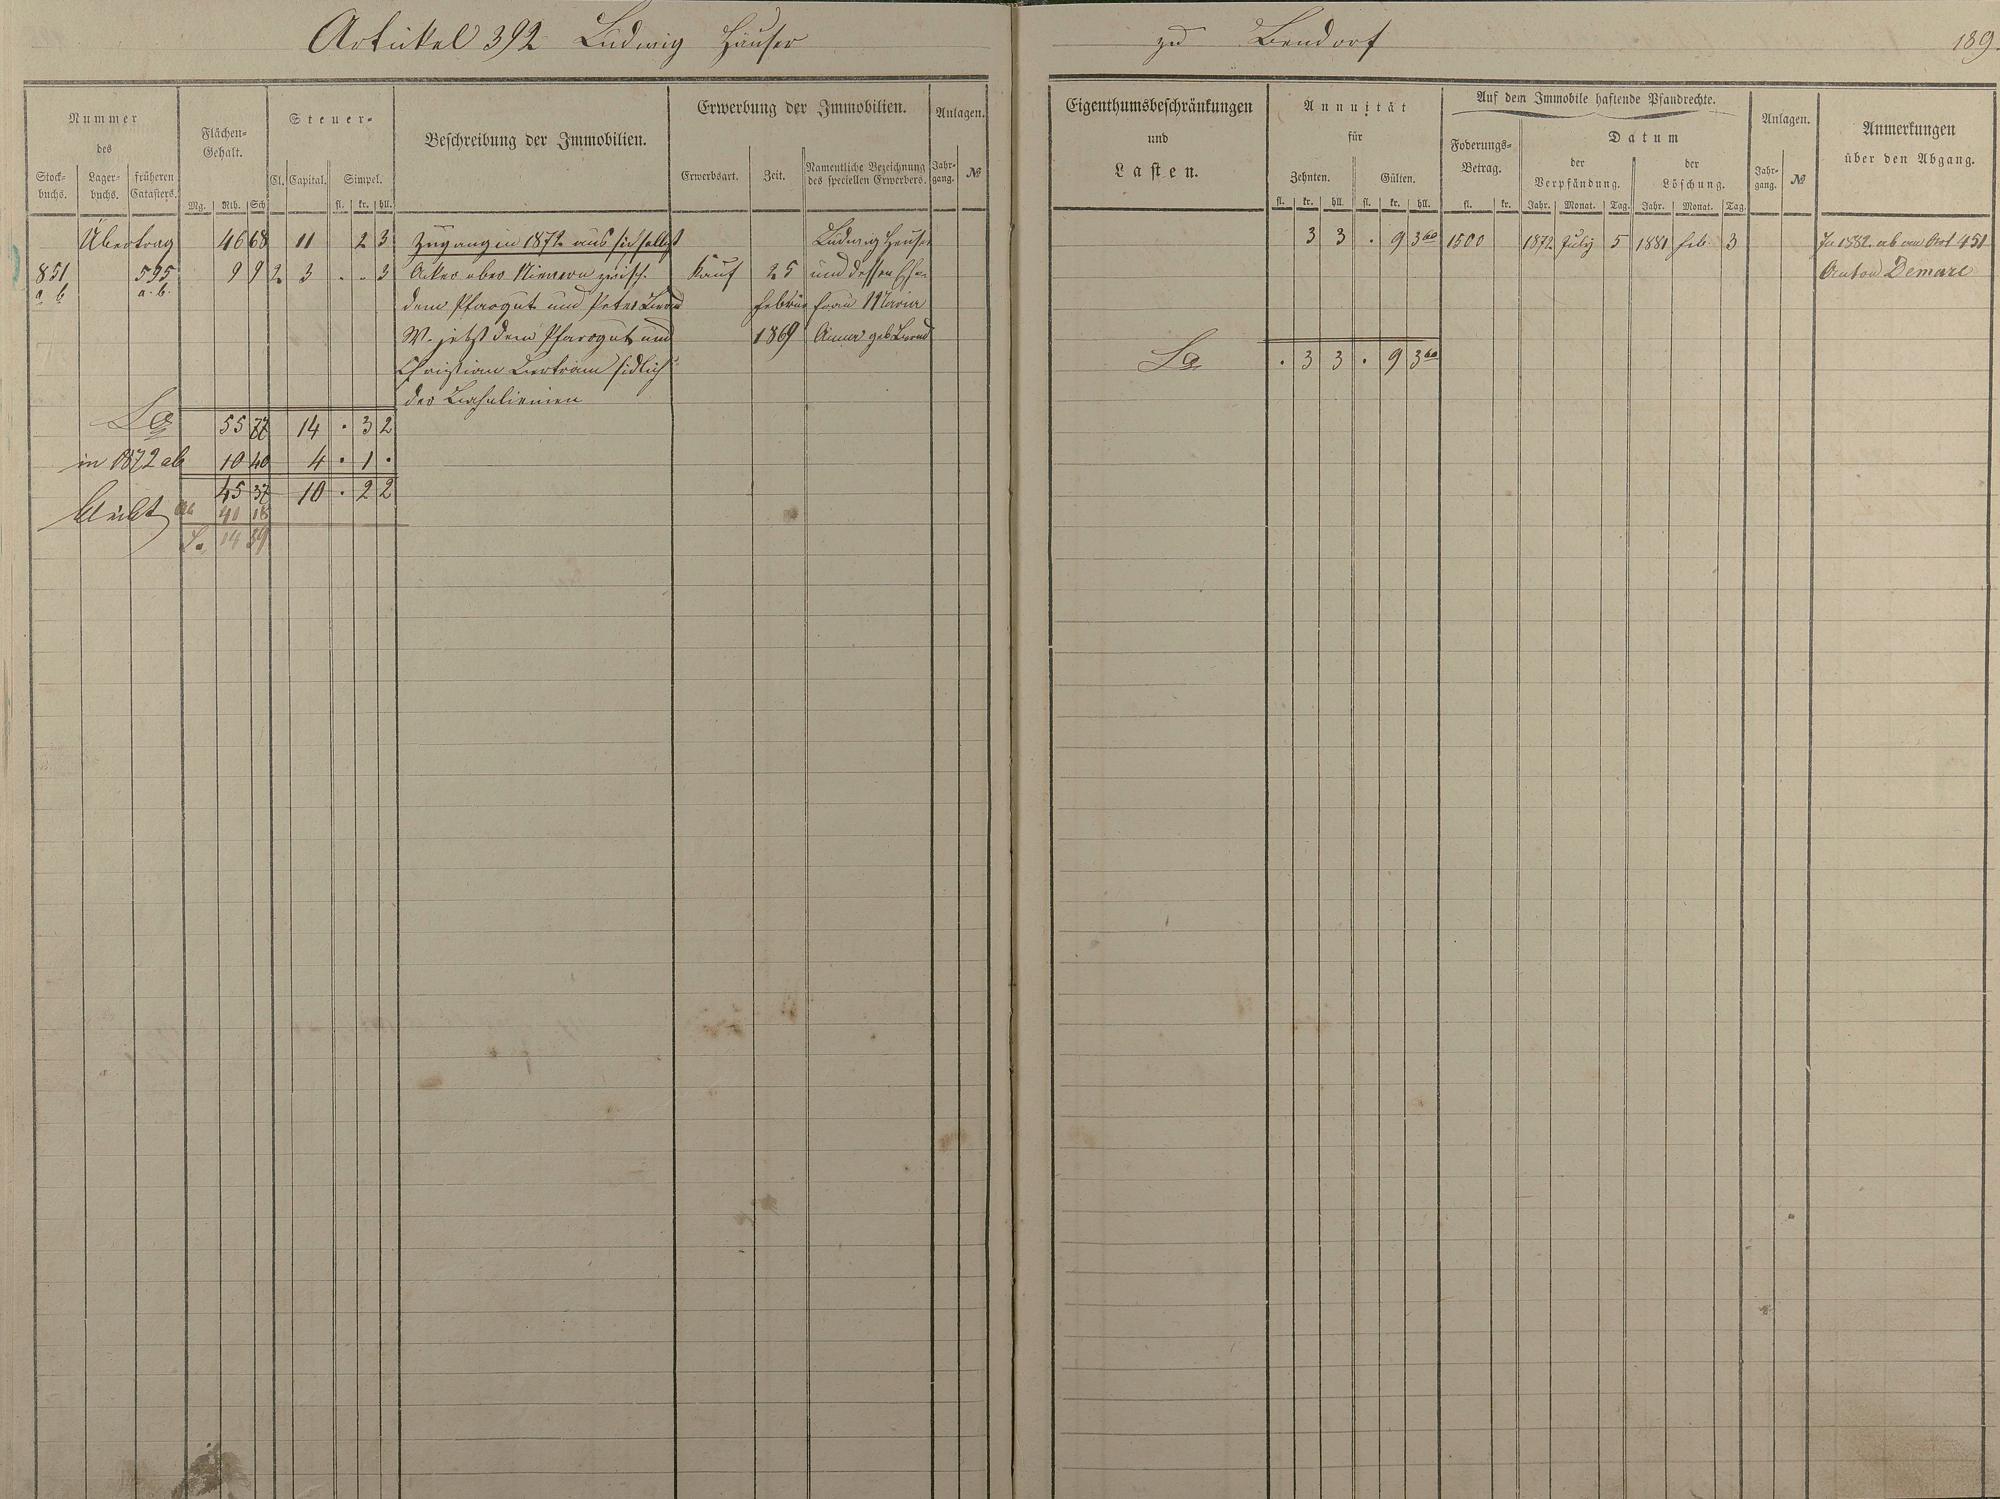 Artickel 392 Ludwig Häuser zu Bendorf 189.
Nummer
des
Stock-
buchs.
Lager-
buchs.
früheren
Catasters.
Flächen-
Gehalt.
Mg. Rth. Sch
Steuer-
Cl. Capital. Simpel.
fl. kr. hll.
Beschreibung der Immobilien.
Erwerbung der Immobilien.
Erwerbsart. Zeit.
Namentliche Bezeichnung
des speciellen Erwerbers.
Anlagen.
Jahr-
gang.
№
Eigenthumsbeschränkungen
und
Lasten.
Annuität
für
Zehnten. Gülten.
fl. kr. hll. fl. kr. hll.
Auf dem Immobile haftende Pfandrechte.
Foderungs-
Betrag.
fl. kr.
Datum
der
Verpfändung.
der
Löschung.
Jahr. Monat. Tag. Jahr. Monat. Tag.
Anlagen.
Jahr-
gang.
№
Anmerkungen
über den Abgang.
Übertrag 46 68 11 2 3 Zugang in 1872 aus sich selbst Ludwig Heuser 3 3 . 9 3 1500 1872 July 5 1881 Feb. 3 In 1882 ab an Art 451
851 595 99 2 3 . . 3 Acker ober zwisch. Kauf 25 und dessen Ehe- Anton Demare
a b a. b. dem Pfarrgut und Peter Februar frau Maria
W. jetzt dem Pfarrgut und 1869 Anna geb.
Christian Bertram südlich
der Bahnlinien
Sa . 3 3 . 9 3
Sa 55 77 14 . 3 2
in 1872 ab 10 40 4 . 1 .
bleibt 45 37 10 . 2 2
ab 41 18
S. 14 59